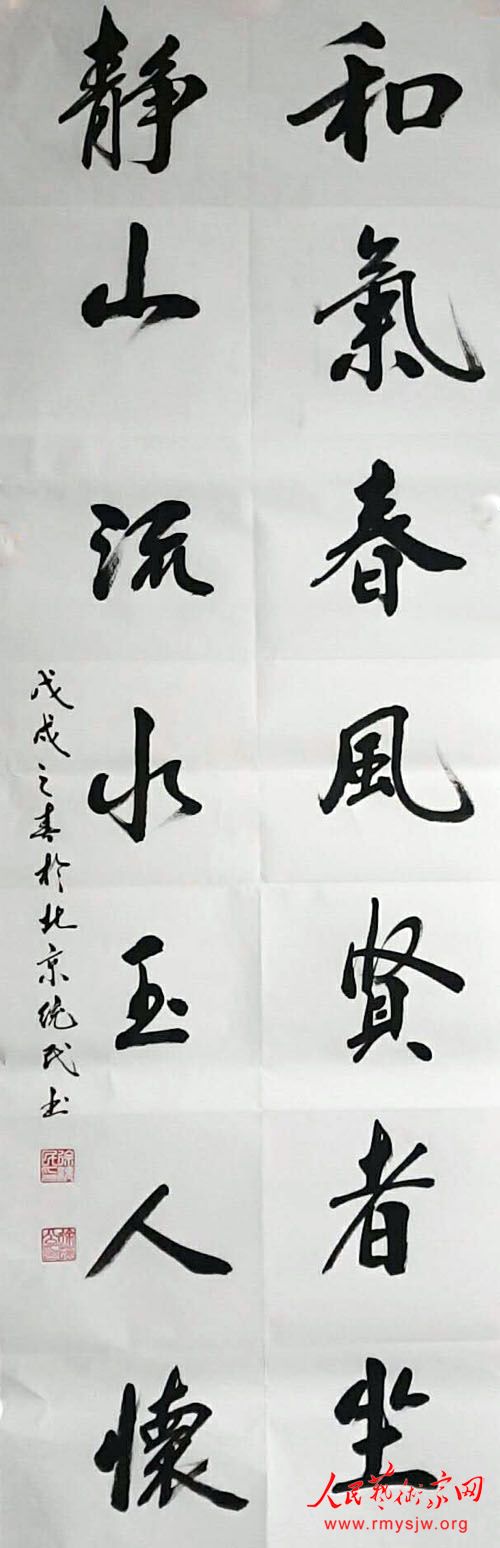 和氣春風賢者坐
靜山流水玉人懷
戊戌之春於北京统民书
人民藝術家网
www.rmysjw.org